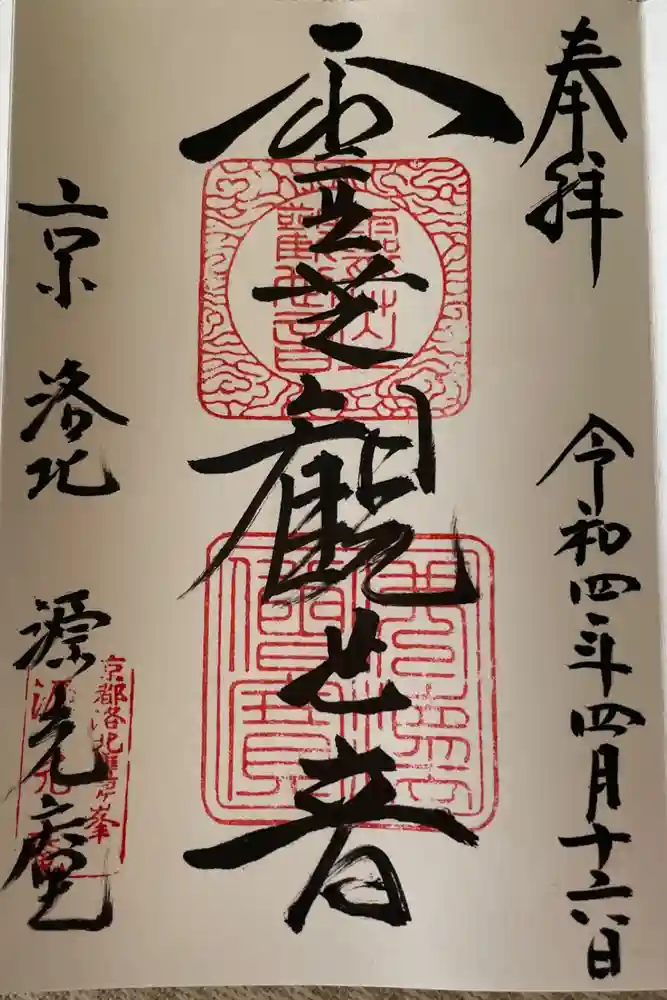 奉拝
令和四年四月十六日
霊芝観世音
京 洛北 源光庵
京都洛北鷹ヶ峯
源光庵